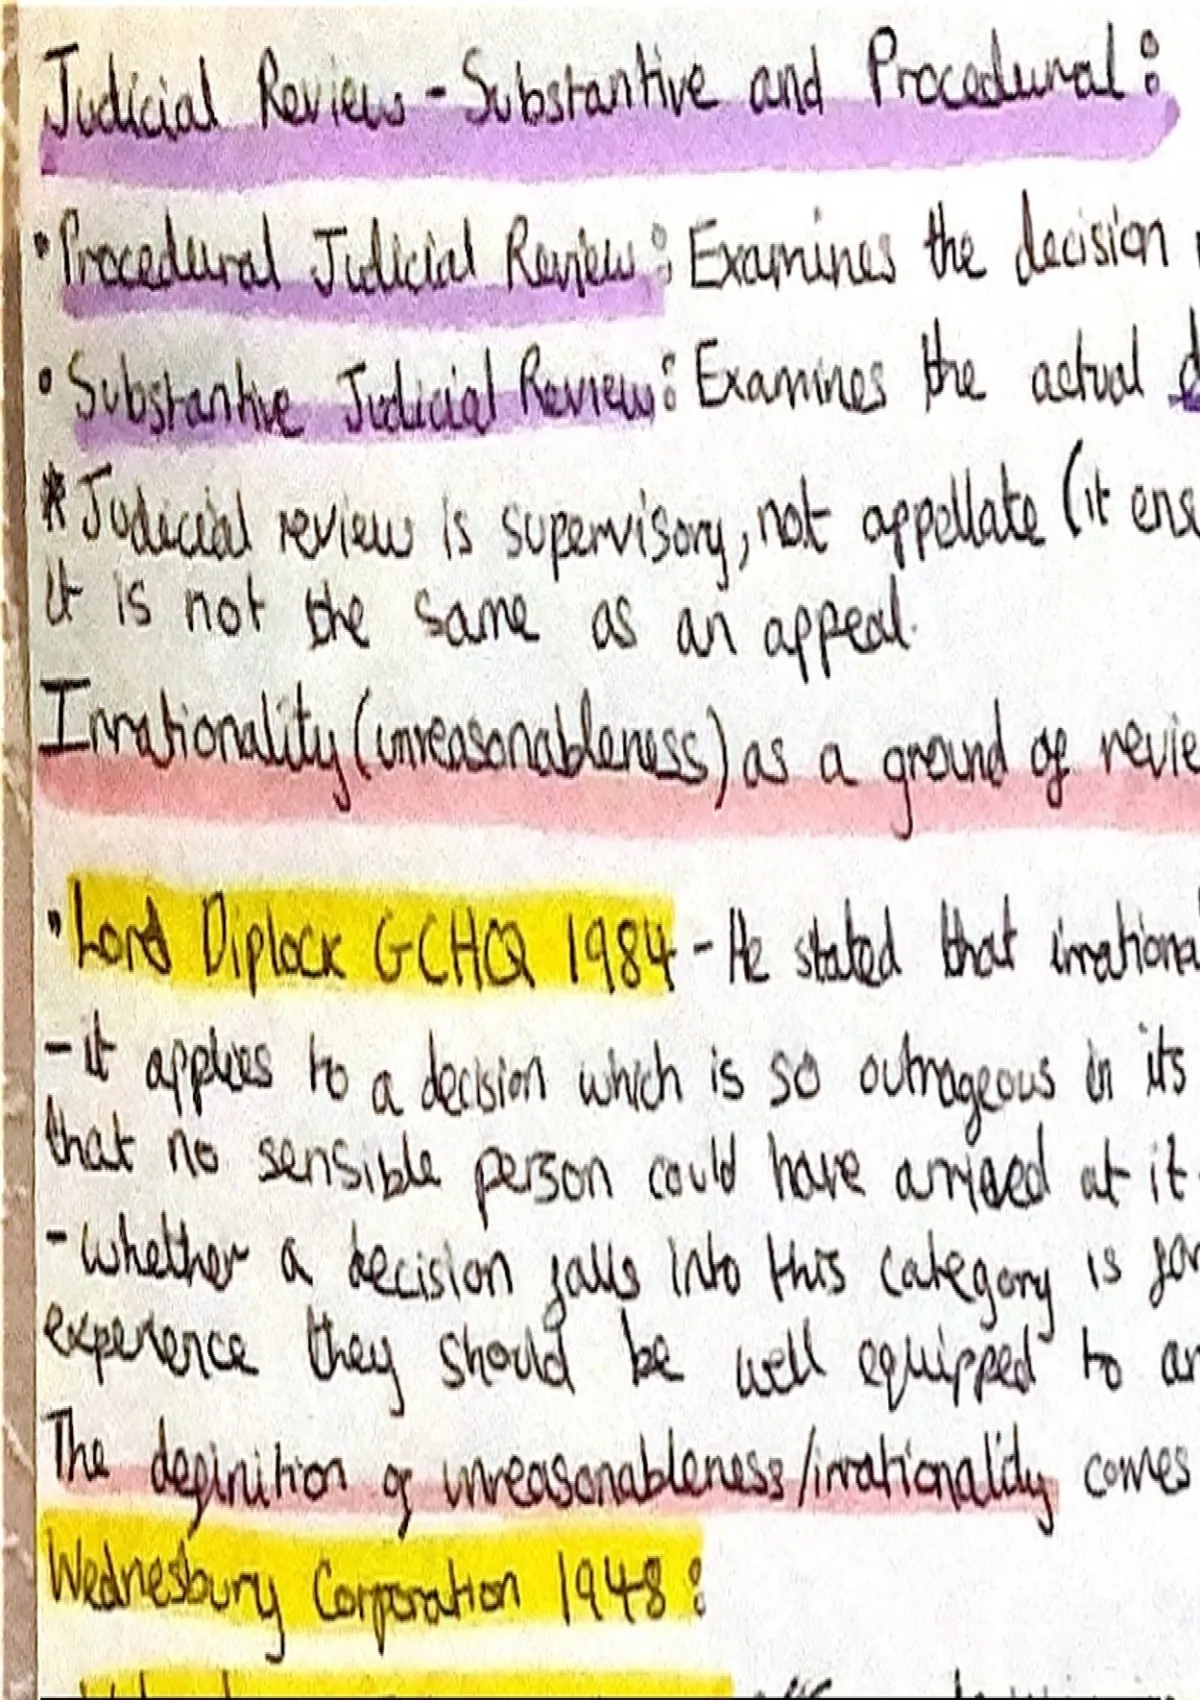 Judicial Review - Substantive and Procedural:
• Procedural Judicial Review: Examines the decision
• Substantive Judicial Review: Examines the actual
* Judicial review is supervisory, not appellate (it ens
it is not the same as an appeal.
Irrationality (unreasonableness) as a ground of revie
• Lord Diplock GCHQ 1984 - He stated that irrationa
- it applies to a decision which is so outrageous in its
that no sensible person could have arrived at it.
- whether a decision falls into this category is
experience they should be well equipped to an
The definition of unreasonableness/irrationality comes
Wednesbury Corporation 1948: